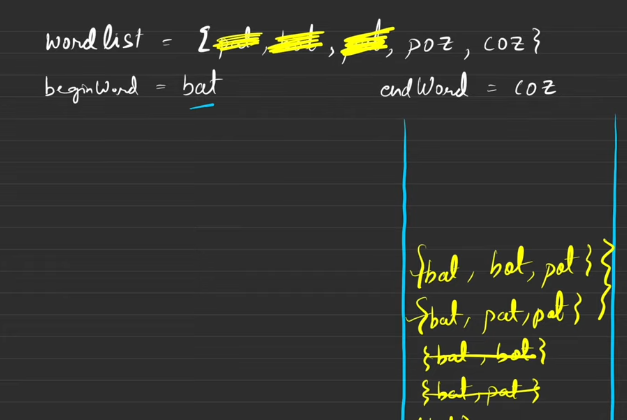 wordList = { , , , poz, coz}
beginWord = bat endWord = coz
{bat, bot, pot}
{bat, pat, pot}
{bat, bot}
{bat, pat}